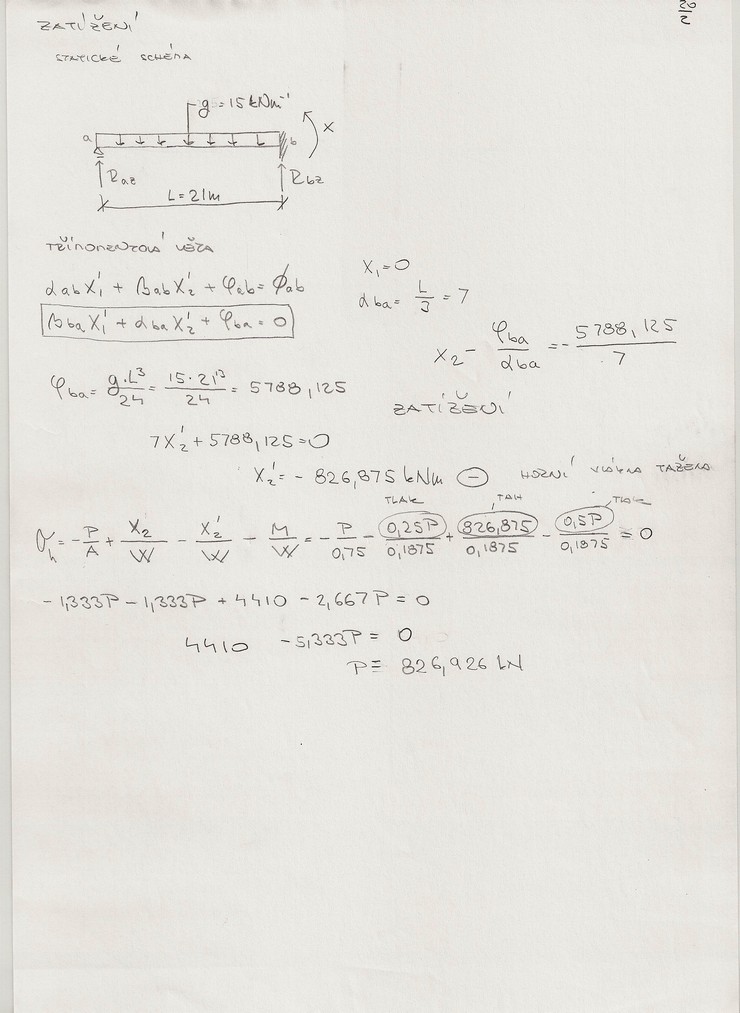 20/2
ZATÍŽENÍ
STATICKÉ SCHÉMA
g = 15 kNm⁻¹
a
b
X
Raz
Rbz
L = 21m
TŘÍMOMENTOVÁ VĚTA
αab X₁' + βab X₂' + φab = ϕab
βba X₁' + αba X₂' + φba = 0
X₁ = 0
αba = L/3 = 7
X₂ - φba/αba = - 5788,125/7
φba = g·L³/24 = 15·21³/24 = 5788,125
ZATÍŽENÍ
7X₂' + 5788,125 = 0
X₂' = - 826,875 kNm ⊖ HORNÍ VLÁKNA TAŽENA
TLAK TAH TLAK
σh = - P/A + X₂/W - X₂'/W - M/W = - P/0,75 - 0,25P/0,1875 + 826,875/0,1875 - 0,5P/0,1875 = 0
- 1,333P - 1,333P + 4410 - 2,667P = 0
4410 - 5,333P = 0
P = 826,926 kN